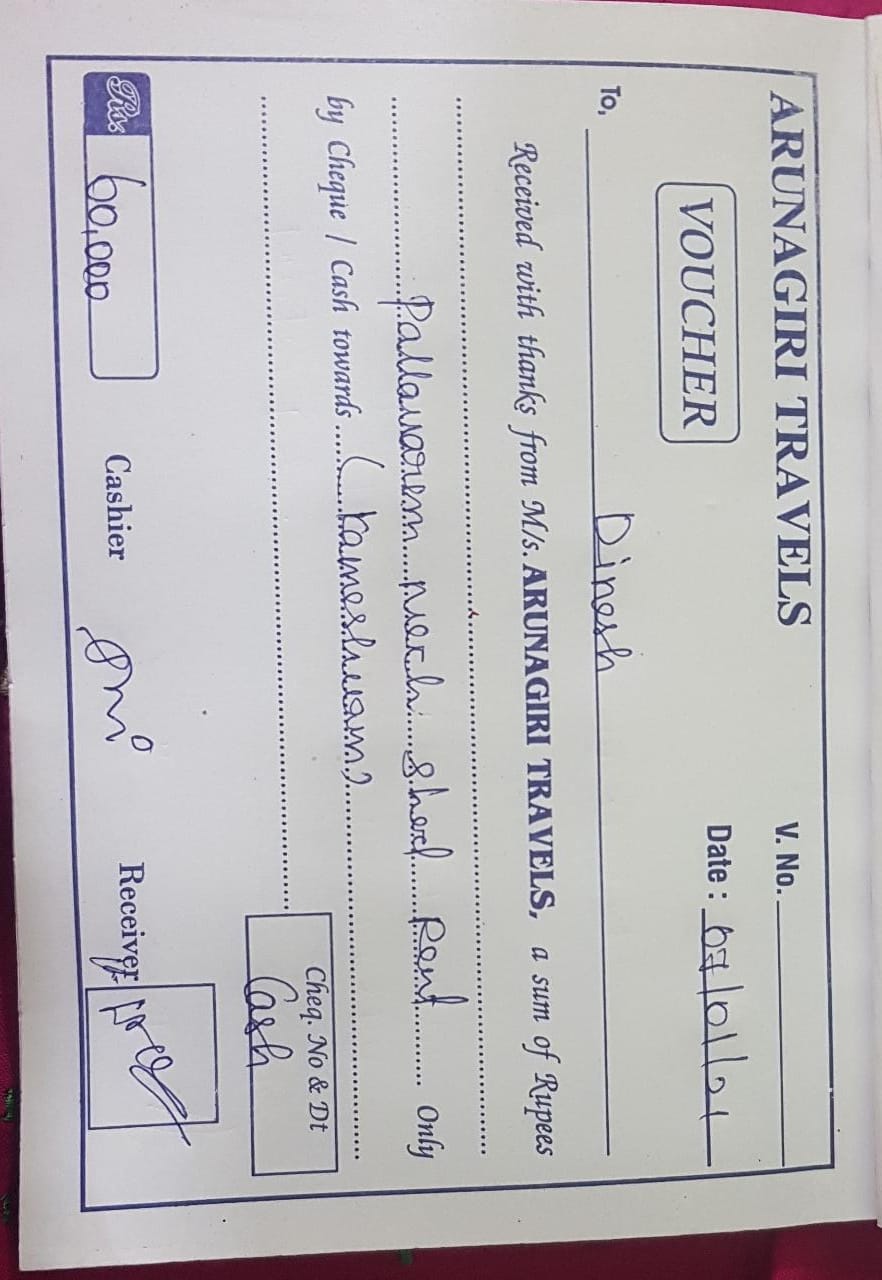 ARUNAGIRI TRAVELS
V. No.
VOUCHER
Date : 07/01/21
To, Dinesh
Received with thanks from M/s. ARUNAGIRI TRAVELS, a sum of Rupees
Pallavarem shed Rent Only
by Cheque / Cash towards (Rameshwam)
Cheq. No & Dt
Cash
Rs. 60,000
Cashier
Receiver